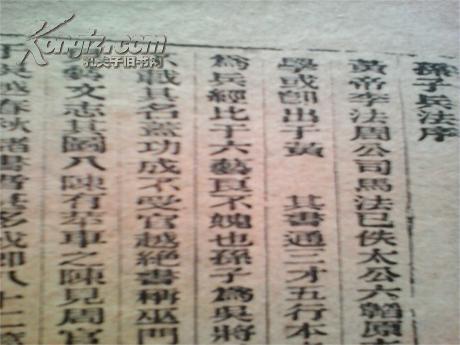 Kongfz.com
孔夫子旧书网
孫子兵法序
黃帝李法周公司馬法已佚太公六韜原
學或卽出于黃　其書通三才五行本
爲兵經比于六藝良不媿也孫子爲吳將
不載其名蓋功成不受官越絕書稱巫門
藝文志其圖八陳有苹車之陳見周官
越春秋諸書者甚多或卽八十二